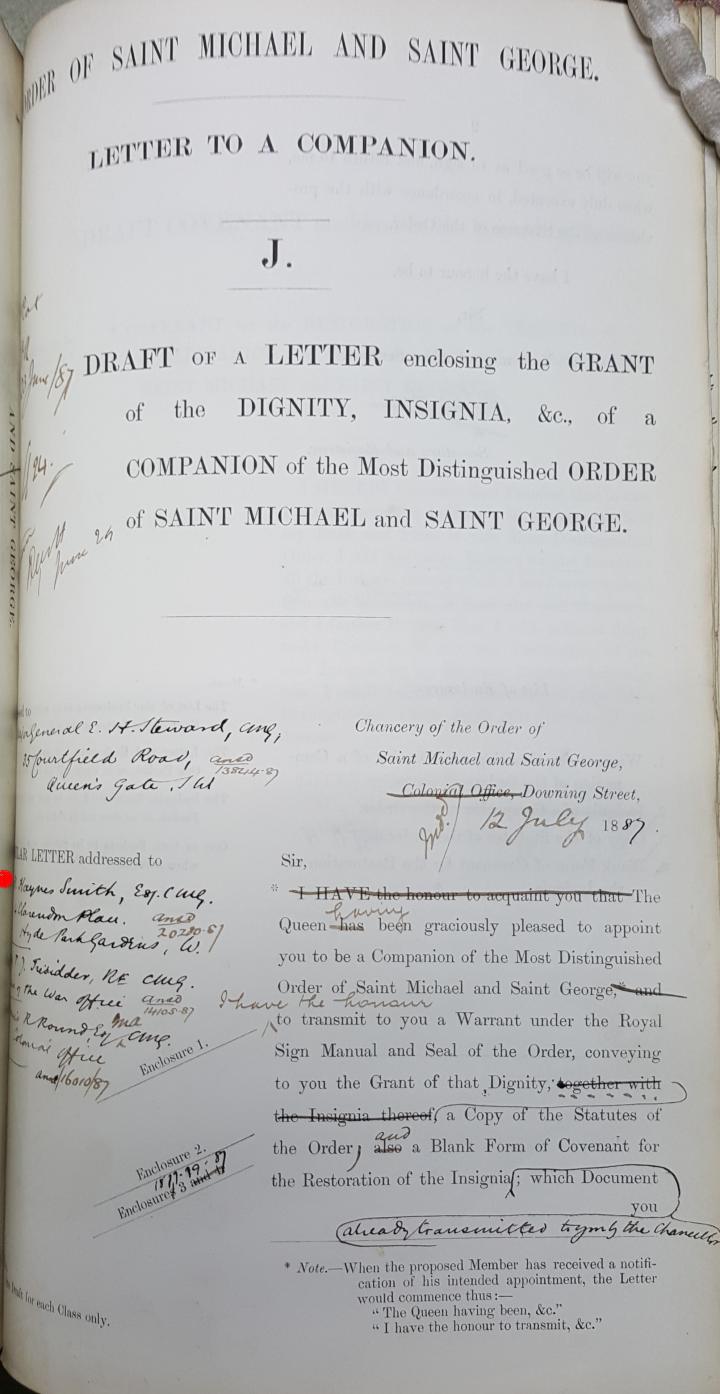 ORDER OF SAINT MICHAEL AND SAINT GEORGE.
LETTER TO A COMPANION.
J.
June/87
DRAFT OF A LETTER enclosing the GRANT
of the DIGNITY, INSIGNIA, &c., of a
COMPANION of the Most Distinguished ORDER
of SAINT MICHAEL and SAINT GEORGE.
24.
June 29
AND SAINT GEORGE.
to
General E. H. Steward, CMG,
Courtfield Road,
Queen's Gate, SW
ansd
13844.87
Chancery of the Order of
Saint Michael and Saint George,
Colonial Office, Downing Street,
12 July 1887.
LETTER addressed to
Haynes Smith, Esq. CMG.
Clarendon Place.
Hyde Park Gardens, W.
ansd
20280.87
J. Trisidder, RE CMG.
the War Office
ansd
14105.87
R Round, Esq MA CMG.
Office
ansd/16010/87
Sir,
* I HAVE the honour to acquaint you that The
Queen has having been graciously pleased to appoint
you to be a Companion of the Most Distinguished
Order of Saint Michael and Saint George,* and
I have the honour
to transmit to you a Warrant under the Royal
Sign Manual and Seal of the Order, conveying
to you the Grant of that Dignity, together with
the Insignia thereof, a Copy of the Statutes of
the Order, also and a Blank Form of Covenant for
the Restoration of the Insignia; which Document
you
already transmitted to you by the Chancellor
Enclosure 1.
Enclosure 2.
Enclosure 3 and 4
* Note.—When the proposed Member has received a notifi-
cation of his intended appointment, the Letter
would commence thus:—
"The Queen having been, &c."
"I have the honour to transmit, &c."
Draft for each Class only.